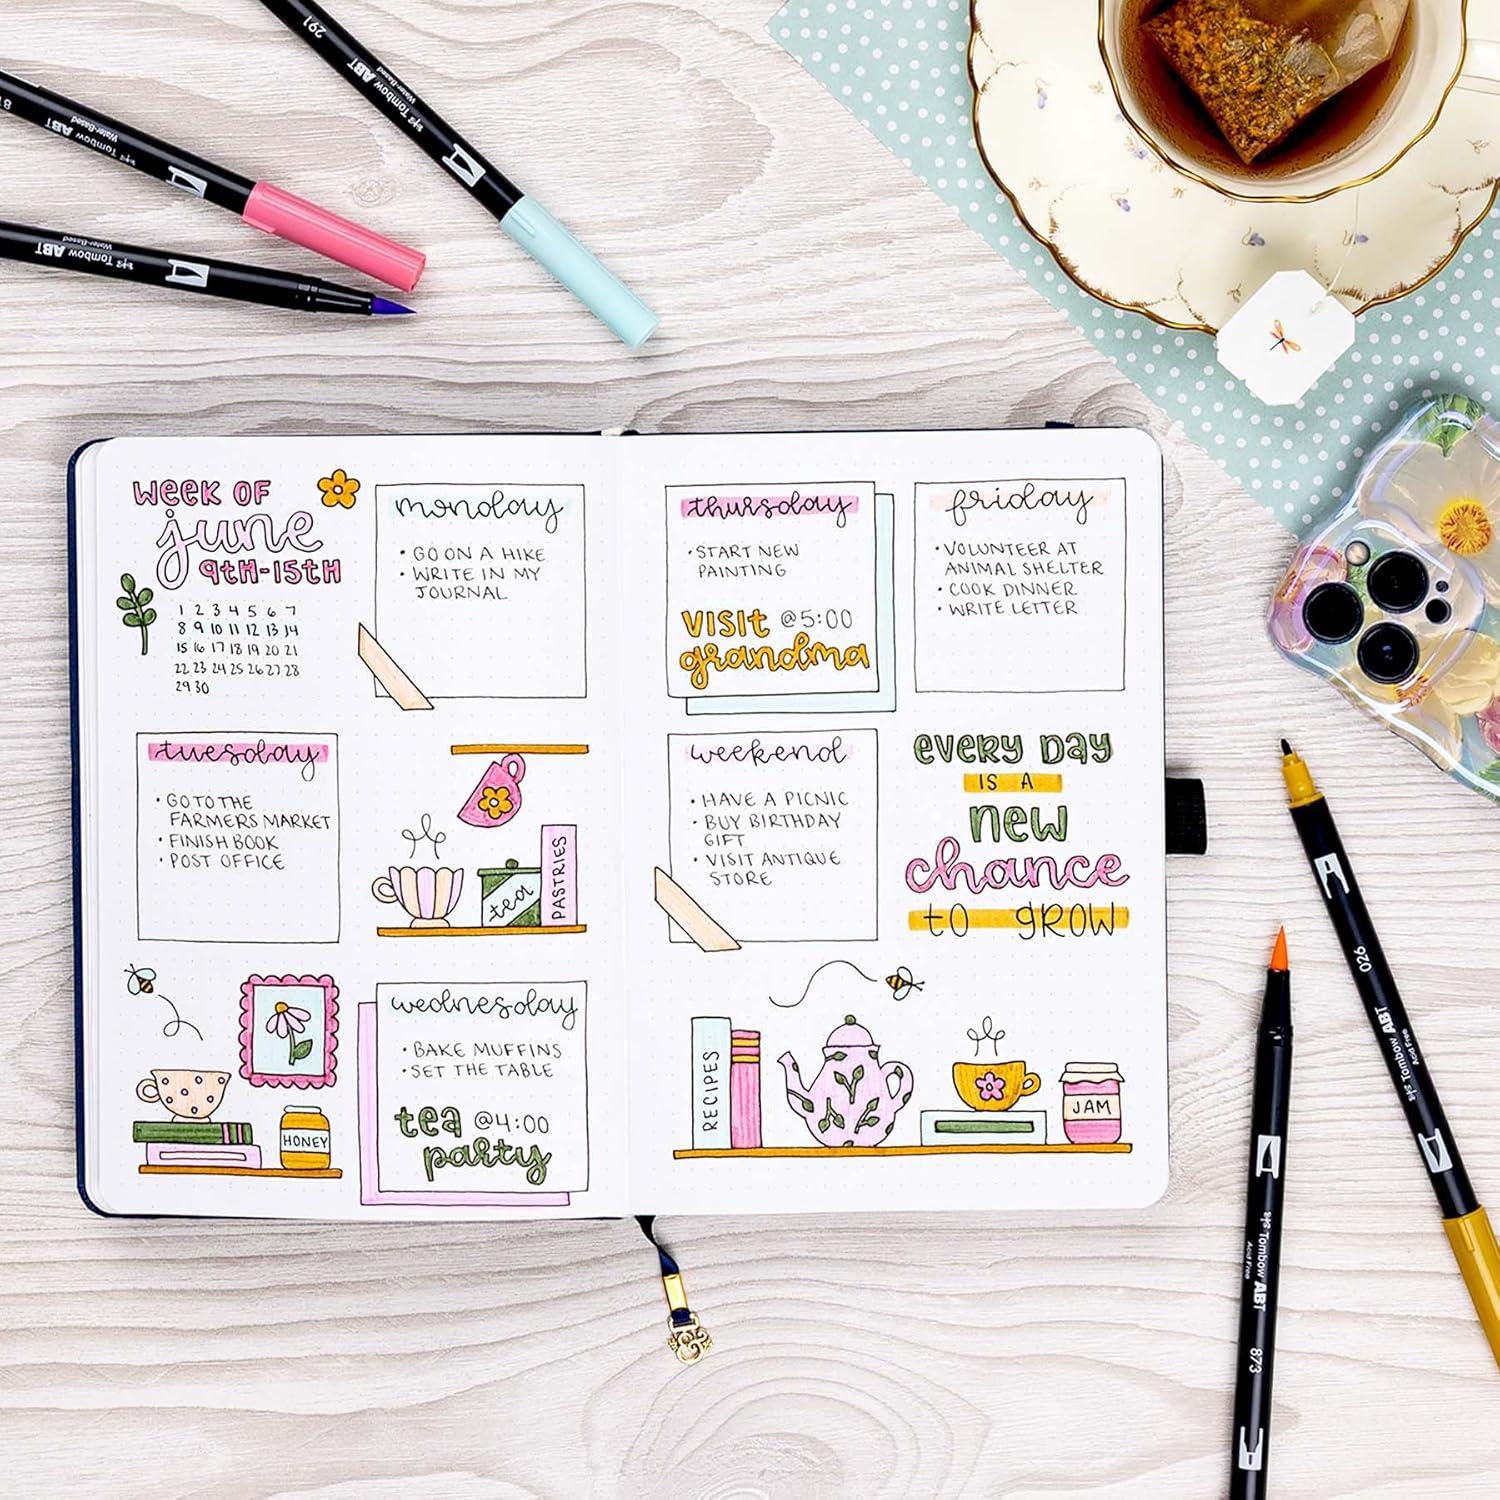 291
Tombow ABT
Water-Based
Tombow ABT
Water-Based
Tombow ABT
Water-Based
week of
june
9th-15th
1 2 3 4 5 6 7
8 9 10 11 12 13 14
15 16 17 18 19 20 21
22 23 24 25 26 27 28
29 30
monday
• GO ON A HIKE
• WRITE IN MY
JOURNAL
tuesday
• GO TO THE
FARMERS MARKET
• FINISH BOOK
• POST OFFICE
tea
PASTRIES
HONEY
wednesday
• BAKE MUFFINS
• SET THE TABLE
tea @4:00
party
thursday
• START NEW
PAINTING
VISIT @5:00
grandma
friday
• VOLUNTEER AT
ANIMAL SHELTER
• COOK DINNER
• WRITE LETTER
weekend
• HAVE A PICNIC
• BUY BIRTHDAY
GIFT
• VISIT ANTIQUE
STORE
every day
IS A
new
chance
to grow
RECIPES
JAM
026
Tombow ABT
Acid Free
Tombow ABT
Acid Free
873